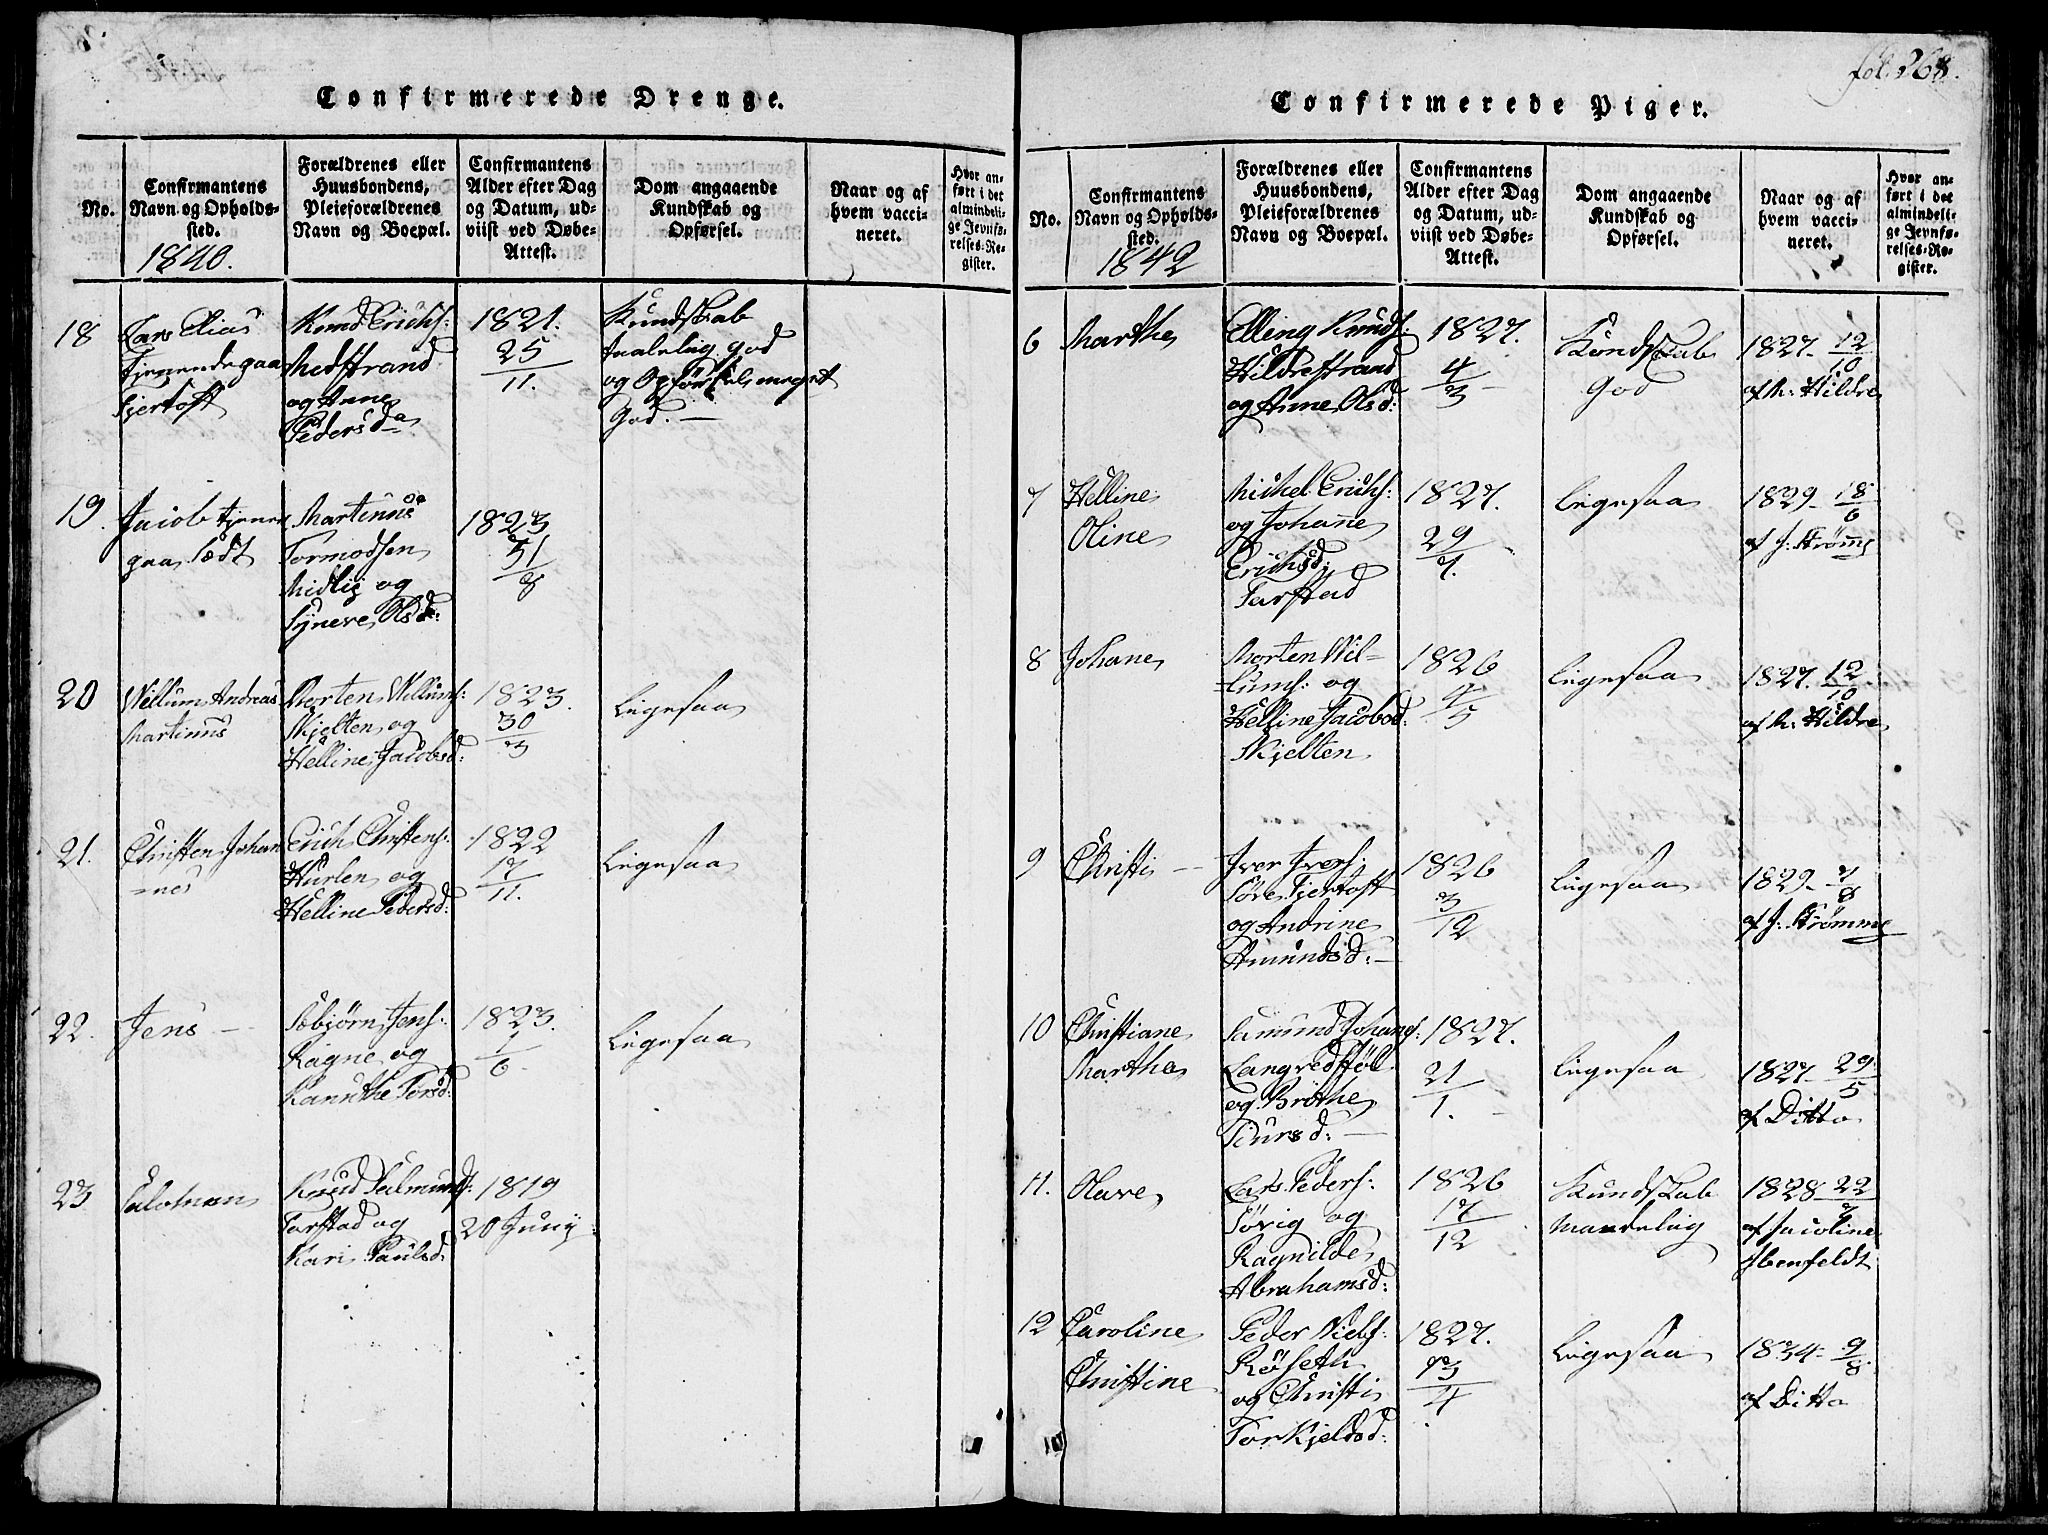 Confirmerede Drenge.
No.
Confirmantens
Navn og Opholds-
sted.
1840.
Forældrenes eller
Huusbondens,
Pleieforældrenes
Navn og Boepæl.
Confirmantens
Alder efter Dag
og Datum, ud-
viist ved Døbe-
Attest.
Dom angaaende
Kundskab og
Opførsel.
Naar og af
hvem vacci-
neret.
Hvor an-
ført i det
almindeli-
ge Jevnfø-
relses-Re-
gister.
18
Lars Elias
tjenende paa
Fjertoft
Knud Erichs:
Medstrand
og Anne
Pedersda
1821.
25
11.
Kundskab
god
og Opførsel meget
God. —
19.
Jacob tjener
paa
Martinus
Tormodsen
Midlie og
Syneve Olsd:
1823
31
8
20
Willum Andreas
Martinus
Morten Willums:
Skjelten og
Helline Jacobsd:
1823.
30
3
Ligesaa
21.
Christen Johan
=nes
Erich Christens:
Hurlen og
Helline Pedersd:
1822
17
11.
Ligesaa
22.
Jens —
Esbjørn Jens:
Ragne og
Torsd:
1823.
1
6
Ligesaa
23
Salomon
Knud Salmunds:
Farstad og
Kari Paulsd
1819
20 Junij
fol. 268.
Confirmerede Piger.
No.
Confirmantens
Navn og Opholds-
sted.
1842
Forældrenes eller
Huusbondens,
Pleieforældrenes
Navn og Boepæl.
Confirmantens
Alder efter Dag
og Datum, ud-
viist ved Døbe-
Attest.
Dom angaaende
Kundskab og
Opførsel.
Naar og af
hvem vacci-
neret.
Hvor an-
ført i det
almindeli-
ge Jevnfø-
relses-Re-
gister.
6
Marthe
Elling Knuds:
Hildrestrand
og Anne Olsd:
1827.
4
3
Kundskab
God
1827. 12
10
af k: Hildre
7
Helline
Oline
Michel Erichs:
og Johanne
Erichsd:
Farstad
1827.
29
7.
Ligesaa
1829 - 18
6
af J: Strømme
8
Johane
Morten Wil=
lums: og
Helline Jacobsd:
Skjelten
1826
4
5
Ligesaa
1827. 12
10
af k: Hildre
9
Christi —
Iver Ivers:
Søre Fjertoft
og Andrine
Amundsd: —
1826
3
12
Ligesaa
1829 - 7
8
af J: Strømme
10
Christiane
Martha
Samund Johans:
Langvedstøl
og Brithe
Siursd: —
1827.
21
1.
Ligesaa
1827 - 29
5
af Ditto
11.
Olave
Lars Peders:
Søvig og
Ragnilde
Abrahamsd:
1826
17
12
Kundskab
Maadelig
1828 - 22
7
af Jacoline
Ibenfeldt
12
Caroline
Christine
Peder Niels:
Røseth
og Christi
Torkjeldsd:
1827.
13
4
Ligesaa
1834 - 9
8
af Ditto